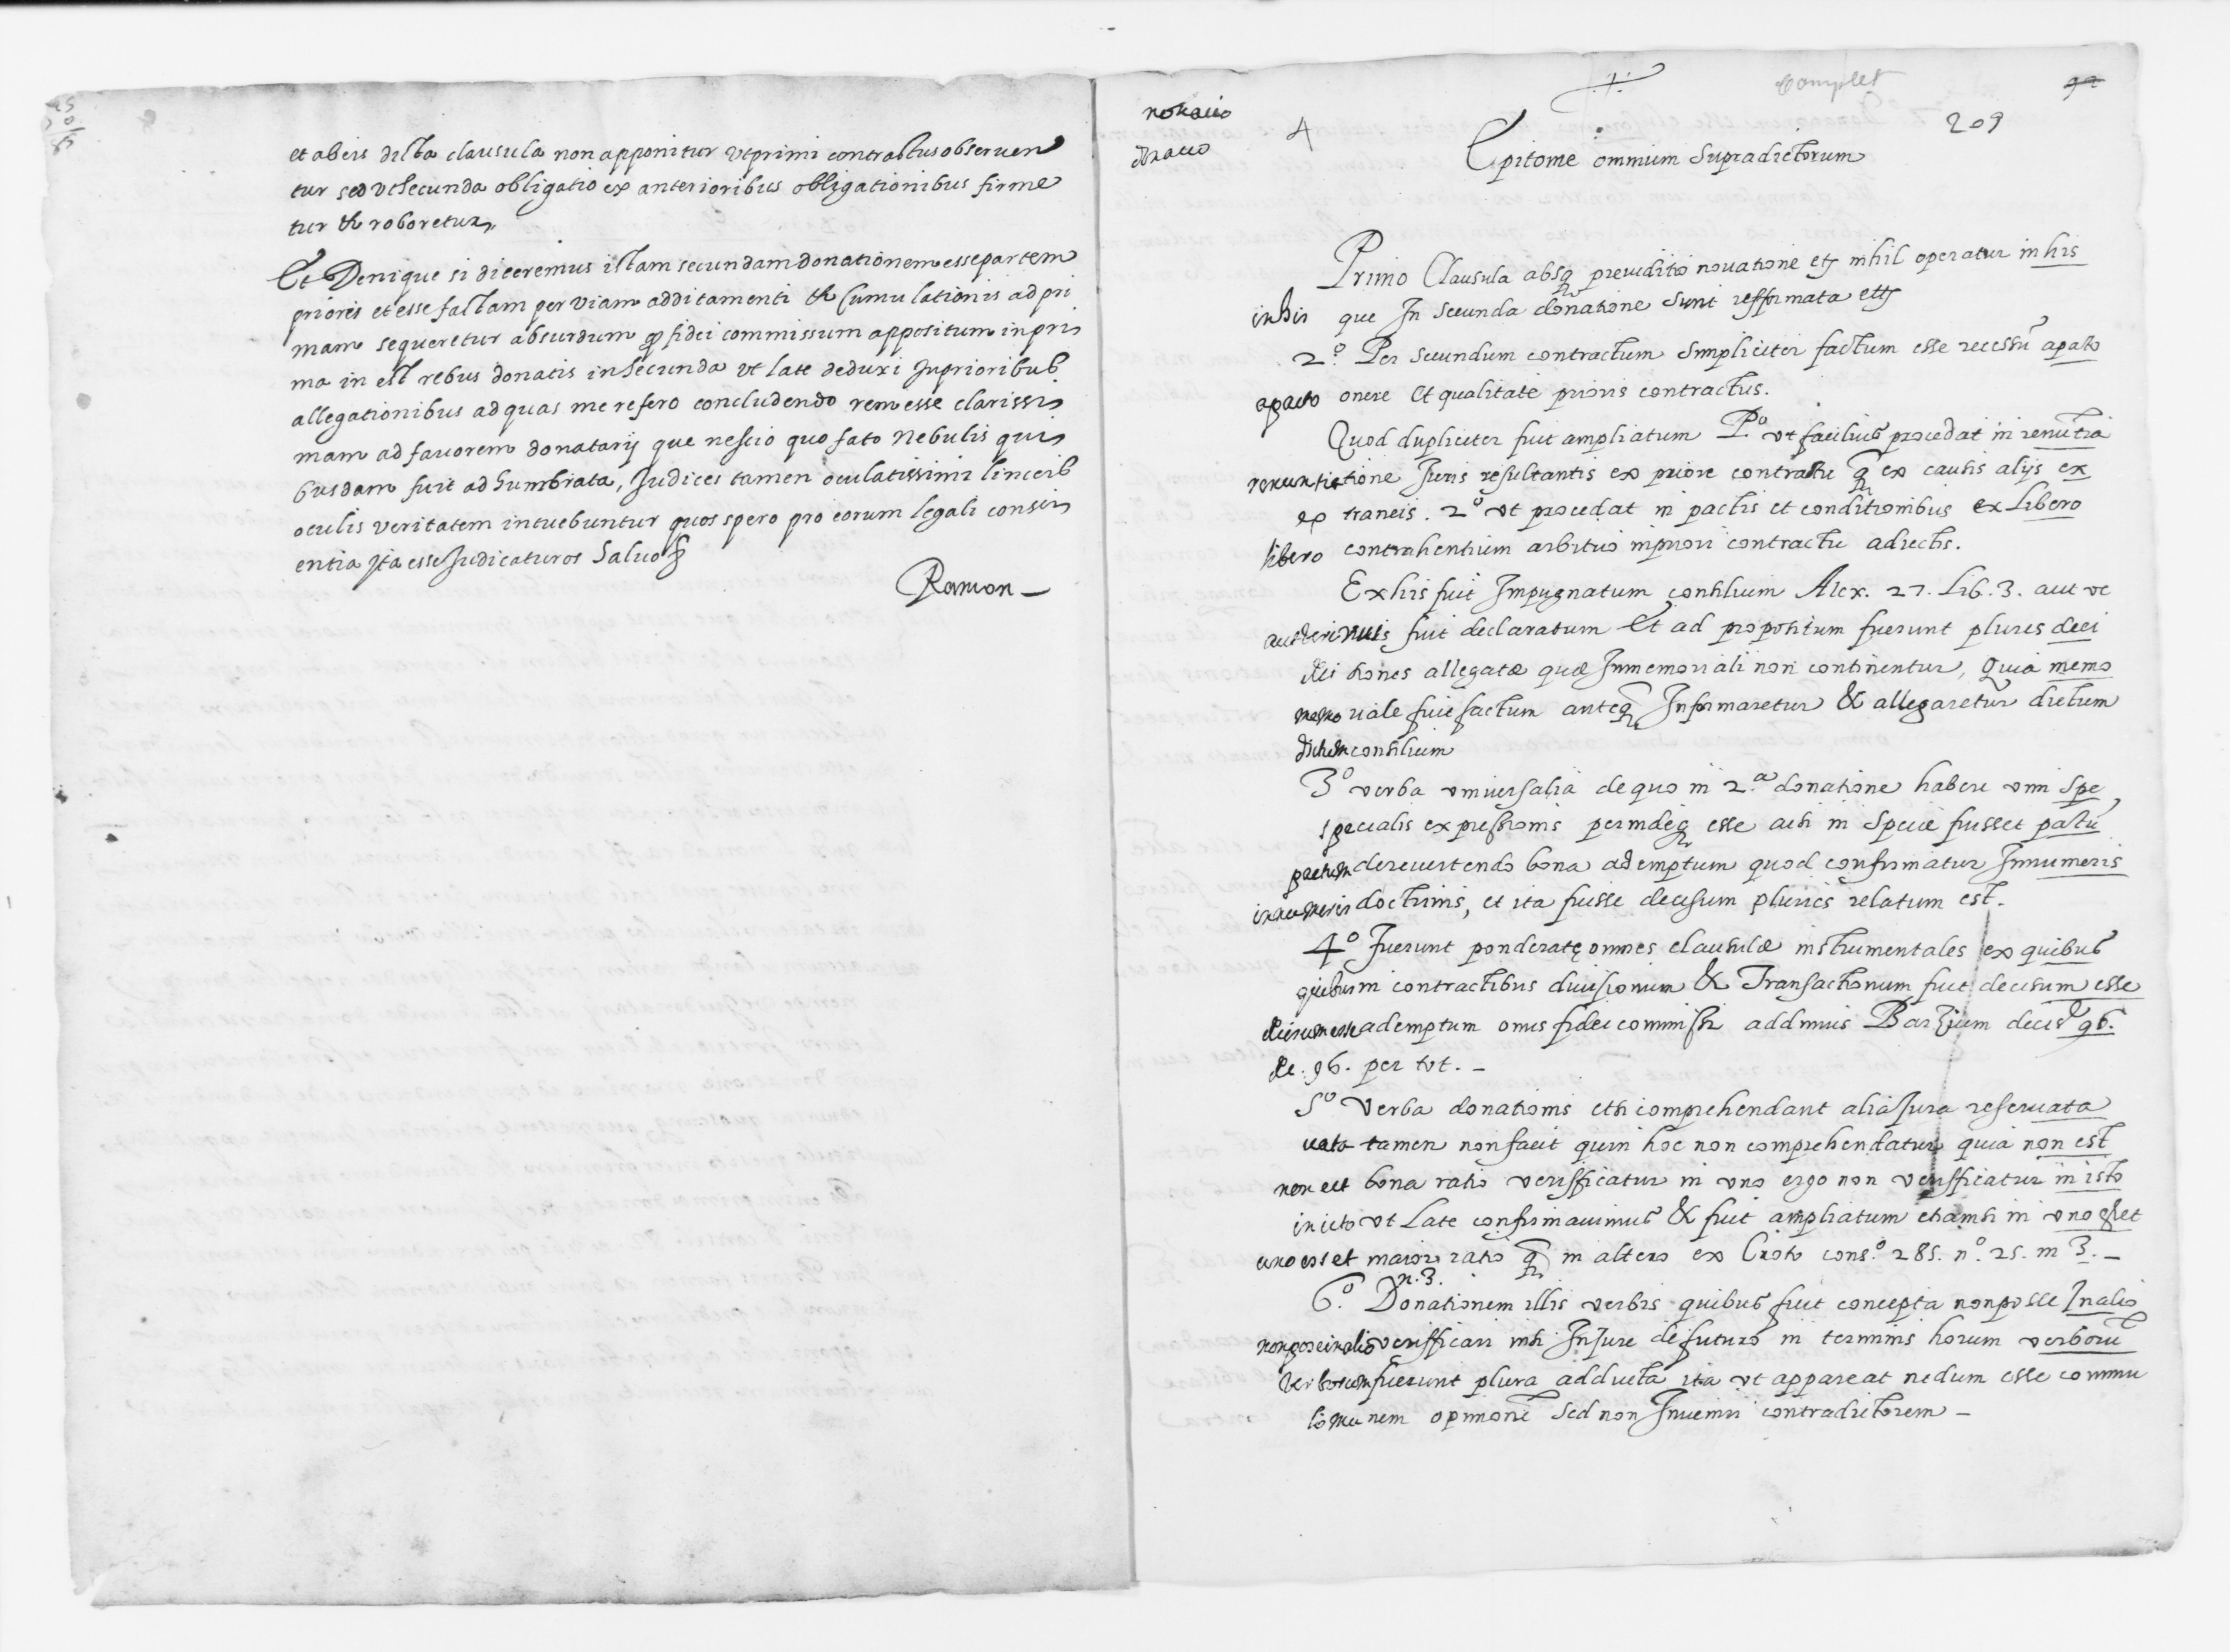 et ab eis dicta clausula non apponitur vt primi contractus obseruen
tur sed vt secunda obligatio ex anterioribus obligationibus firme
tur & roboretur,
Et Denique si diceremus istam secundam donationem esse partem
prioris et esse factam per viam additamenti & Cumulationis ad pri
mam sequeretur absurdum fidei commissum appositum in pri
ma in est rebus donatis in secunda vt late deduxi Inprioribus
allegationibus ad quas me refero concludendo rem esse clarissi
mam ad fauorem donatarij que nescio quo fato Nebulis qui
busdam fuit adhumbrata, Judices tamen oculatissimi linceis
oculis veritatem intuebuntur quos spero pro eorum legali consci
entia Jta esse Judicaturos Saluo
Ramon
Complet
209
4
Epitome omnium Supradictorum
Primo Clausula absq preiuditio nouatione et nihil operatur in his
in his que In secunda donatione sunt refformata
2.º Per secundum contractum simpliciter factum esse recessũ a pacto
a pacto onere et qualitate prioris contractus.
Quod dupliciter fuit ampliatum P.º vt facilius procedat in renũtia
renuntiatione Juris resultantis ex priore contractu q ex causis alijs ex
ex traneis. 2º vt procedat in pactis et conditionibus ex Libero
libero contrahentium arbitrio in priori contractu adiectis.
Ex his fuit Impugnatum consilium Alex. 27. Lib. 3. aut ve
aut verius fuit declaratum et ad propositum fuerunt plures deci
deci siones allegatæ quæ Inmemoriali non continentur, Quia memo
memo riale fuit factum anteq Informaretur & allegaretur dictum
dictum consilium
3º verba vniuersalia de quo in 2.ª donatione habere vim spe
specialis expressionis perindeq esse acsi in specie fuisset pactũ
pactum de reuertendo bona ademptum quod confirmatur Innumeris
innumeris doctrinis, et ita fuisse decisum pluries relatum est.
4º fuerunt ponderatę omnes clausulæ instrumentales ex quibus
quibus in contractibus diuisionum & Transactionum fuit decisum esse
decisum esse ademptum onus fidei commissi addimus Barzium decis 96.
de. 96. per tot.
5º Verba donationis etsi comprehendant alia Jura reseruata
uata tamen non facit quin hoc non comprehendatur quia non est
non est bona ratio verifficatur in vno ergo non verifficatur in isto
in isto vt Late confirmauimus & fuit ampliatum etiamsi in vno esset
uno esset maior ratio q in altero ex Croto cons.º 285. nº. 25. in 3.
n. 3.
6.º Donationem illis verbis quibus fuit concepta non posse In alio
non posse in alio verifficari nisi In Jure de futuro in terminis horum verborũ
verborum fuerunt plura adducta ita vt appareat nedum esse commu
comu nem opinionẽ sed non Inueniri contradictorem